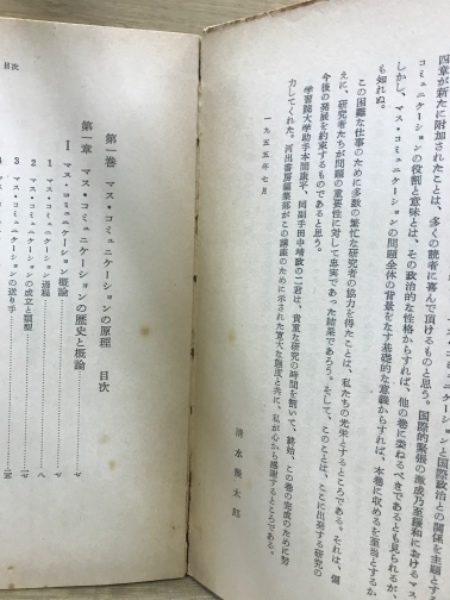 四章が新たに附加されたことは、多くの読者に喜んで頂けるものと思う。国際的緊張の激成乃至緩和におけるマス・
コミュニケーションの役割と意味とは、その政治的な性格からすれば、他の巻に委ねるべきであるとも見られるが、
しかし、マス・コミュニケーションの問題全体の背景をなす基礎的な意義からすれば、本巻に収めるを至当とするか
も知れぬ。
この困難な仕事のために多数の繁忙な研究者の協力を得たことは、私たちの光栄とするところである。それは、偏
えに、研究者たちが問題の重要性に対して忠実であった結果であろう。そして、このことは、ここに出発する研究の
今後の発展を約束するものであると思う。
学習院大学助手本間康平、同副手田中靖政の二君は、貴重な研究の時間を割いて、終始、この巻の完成のために努
力してくれた。河出書房編集部がこの講座のために示された寛大な態度と共に、私が心から感謝するところである。
一九五五年七月
清水幾太郎
第一巻 マス・コミュニケーションの原理 目次
第一章 マス・コミュニケーションの歴史と概論
I マス・コミュニケーション概論
1 マス・コミュニケーション過程
2 マス・コミュニケーションの成立と類型 八
3 マス・コミュニケーションの送り手
4
目次